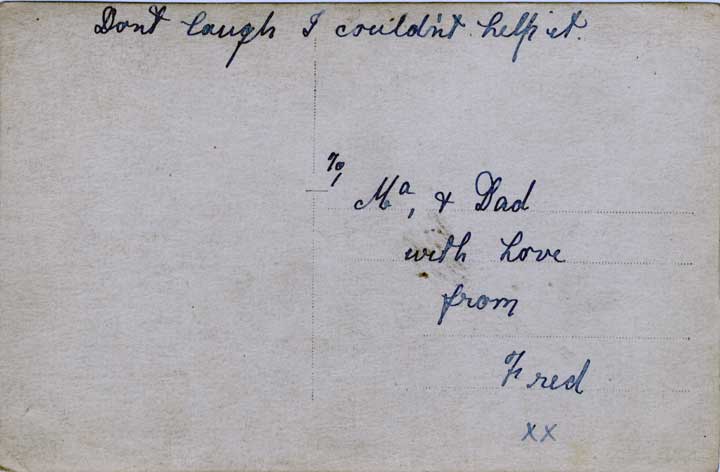 Dont laugh I couldn't help it.
To,
Ma, & Dad
with love
from
Fred
xx